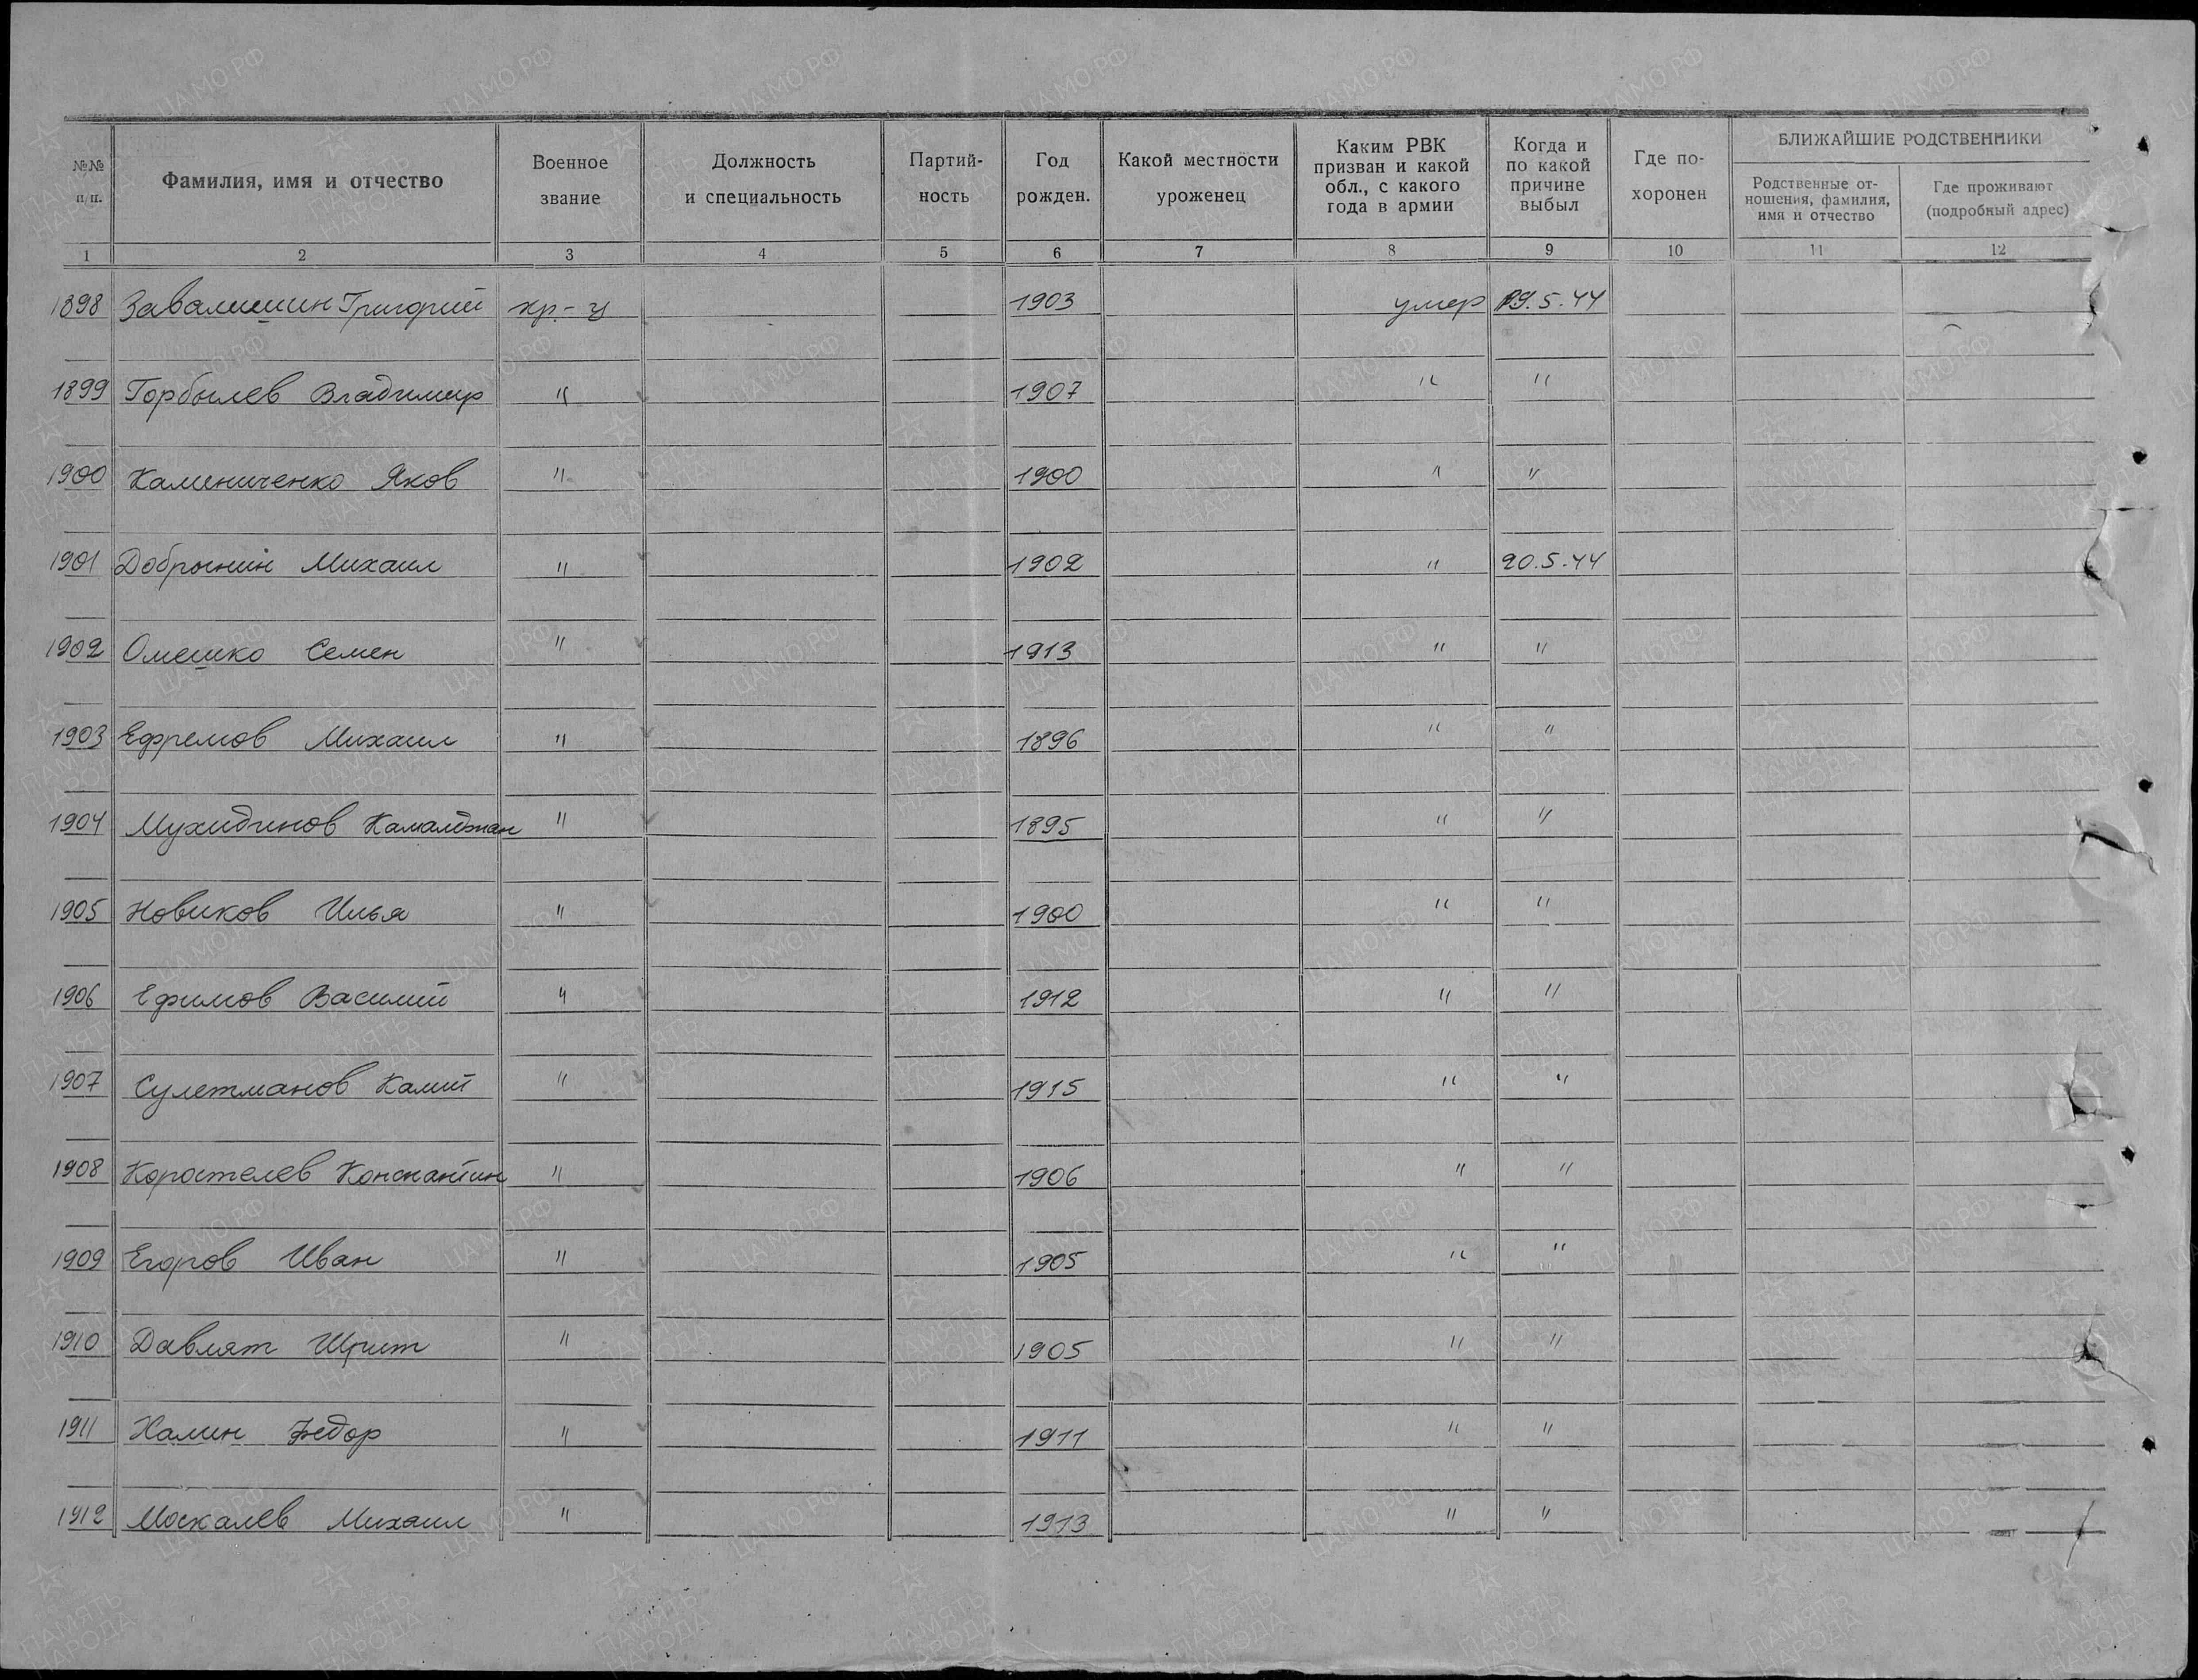 №№ п/п. Фамилия, имя и отчество Военное звание Должность и специальность Партий- ность Год рожден. Какой местности уроженец Каким РВК призван и какой обл., с какого года в армии Когда и по какой причине выбыл Где по- хоронен БЛИЖАЙШИЕ РОДСТВЕННИКИ
Родственные от- ношения, фамилия, имя и отчество Где проживают (подробный адрес)
1 2 3 4 5 6 7 8 9 10 11 12
1898 Завалишин Григорий кр-ц 1903 умер 19.5.44
1899 Горбылев Владимир " 1907 " "
1900 Каминиченко Яков " 1900 " "
1901 Добрынин Михаил " 1902 " 20.5.44
1902 Омешко Семен " 1913 " "
1903 Ефремов Михаил " 1896 " "
1904 Мухидинов Камалджан " 1895 " "
1905 Новиков Илья " 1900 " "
1906 Ефимов Василий " 1912 " "
1907 Сулейманов " 1915 " "
1908 Коростелев Константин " 1906 " "
1909 Егоров Иван " 1905 " "
1910 Давлят " 1905 " "
1911 Халин Федор " 1911 " "
1912 Москалев Михаил " 1913 " "